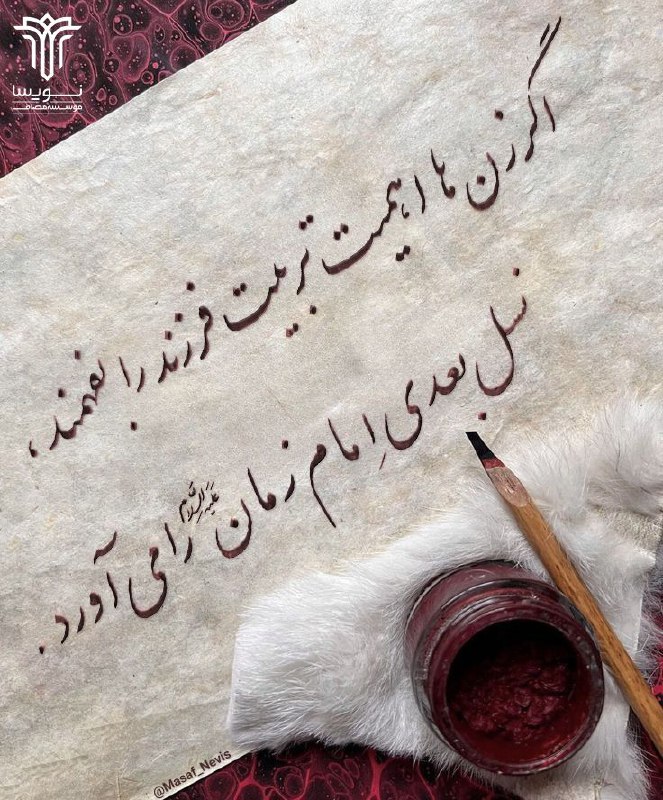 نویسا
موسسه مصاف
اگر زن ها اهمیت تربیت فرزند را بفهمند،
نسل بعدی اِمام زمان علیه السلام را می آورد.
@Masaf_Nevis